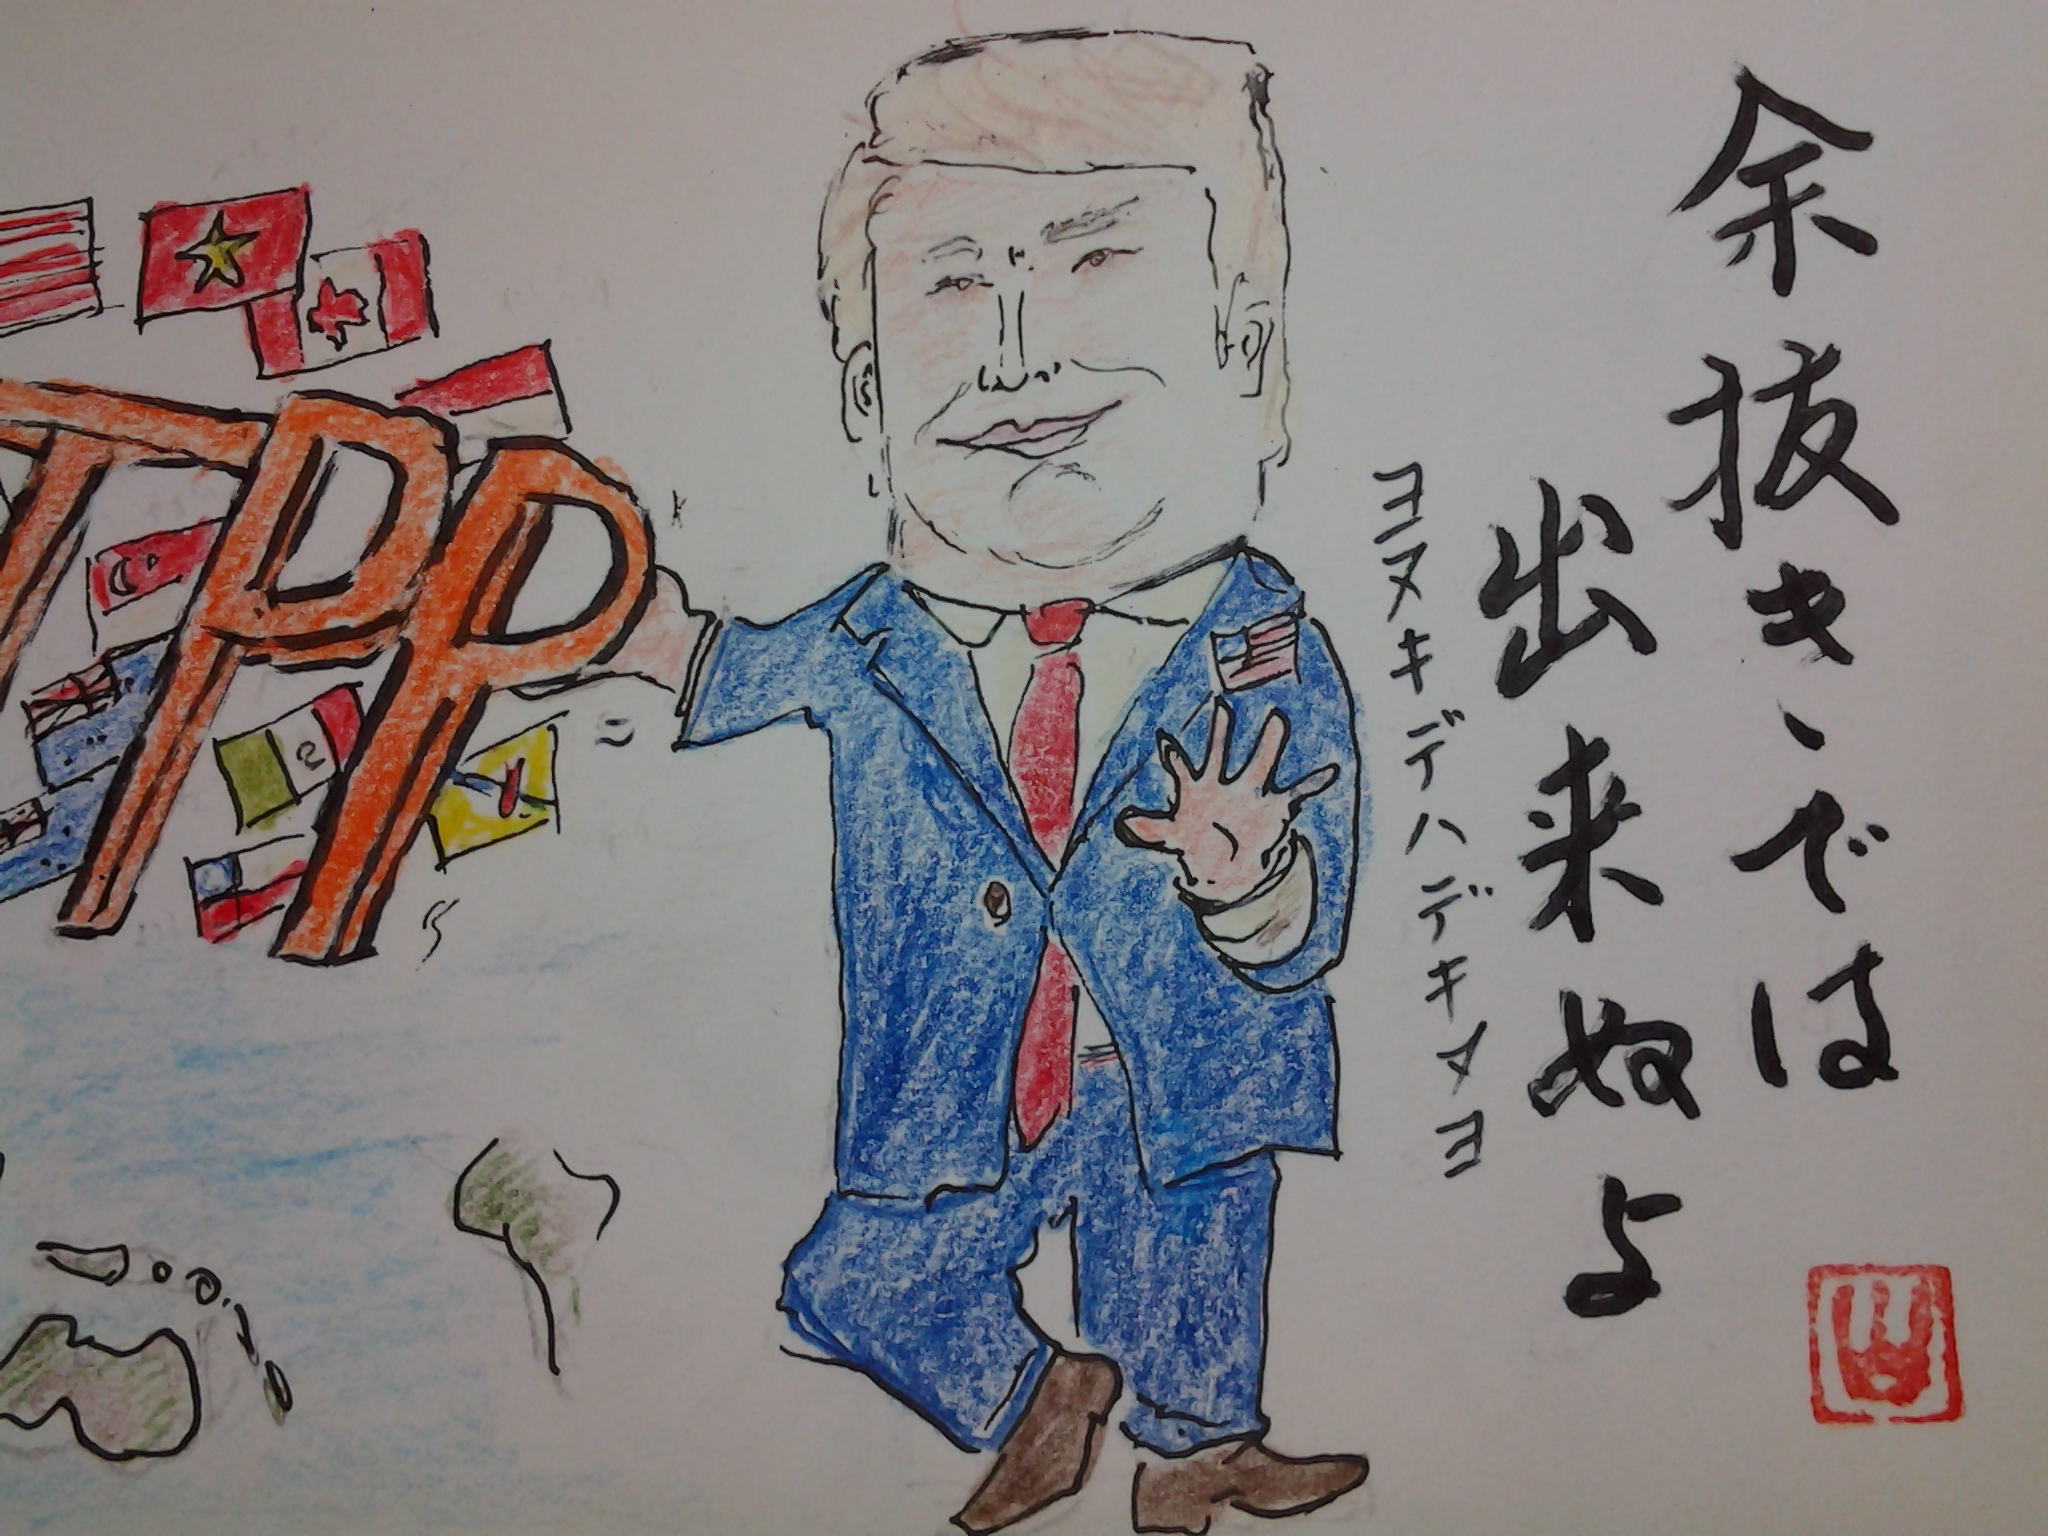 余抜き、では
出来ぬよ
ヨヌキデハデキヌヨ
TPP